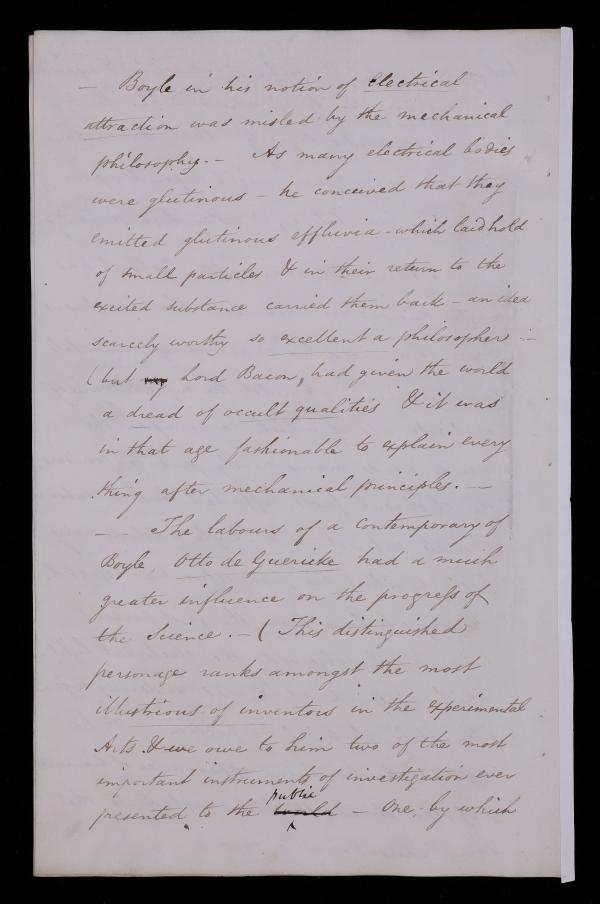 — Boyle in his notion of electrical
attraction was misled by the mechanical
philosophy. — As many electrical bodies
were glutinous — he conceived that they
emitted glutinous effluvia - which laid hold
of small particles & in their return to the
excited substance carried them back — an idea
scarcely worthy so excellent a philosopher :—
(but Lord Bacon, had given the world
a dread of occult qualities & it was
in that age fashionable to explain every
thing after mechanical principles. —
— — The labours of a contemporary of
Boyle, Otto de Guericke had a much
greater influence on the progress of
the Science. — ( This distinguished
personage ranks amongst the most
illustrious of inventors in the experimental
Arts & we owe to him two of the most
important instruments of investigation ever
public
presented to the world — One, by which